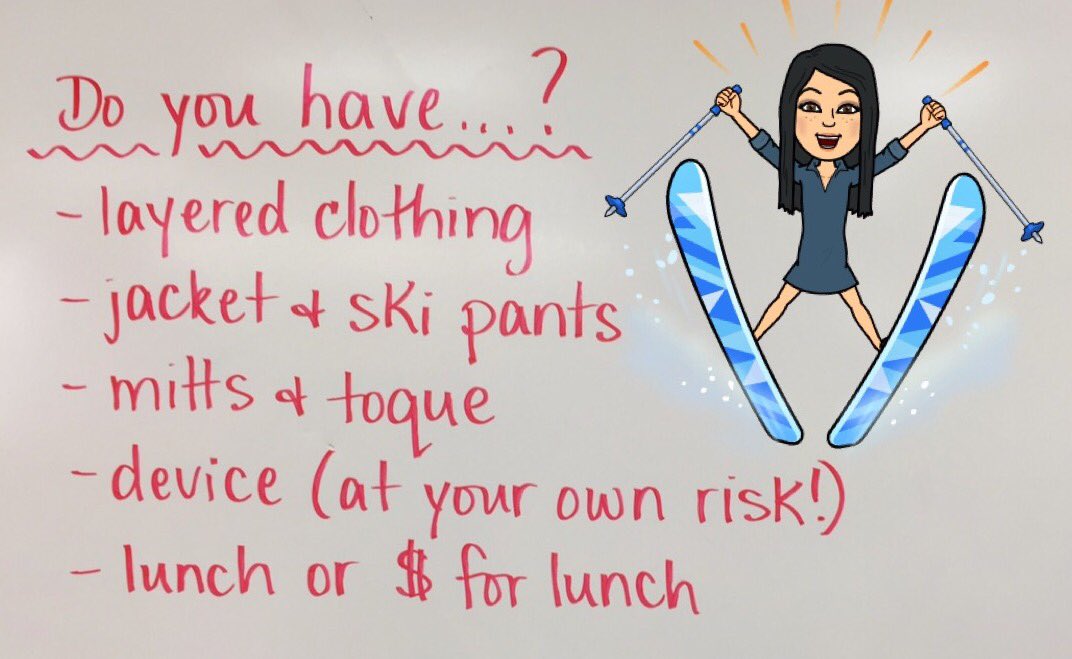 Do you have....?
- layered clothing
- jacket & ski pants
- mitts & toque
- device (at your own risk!)
- lunch or $ for lunch